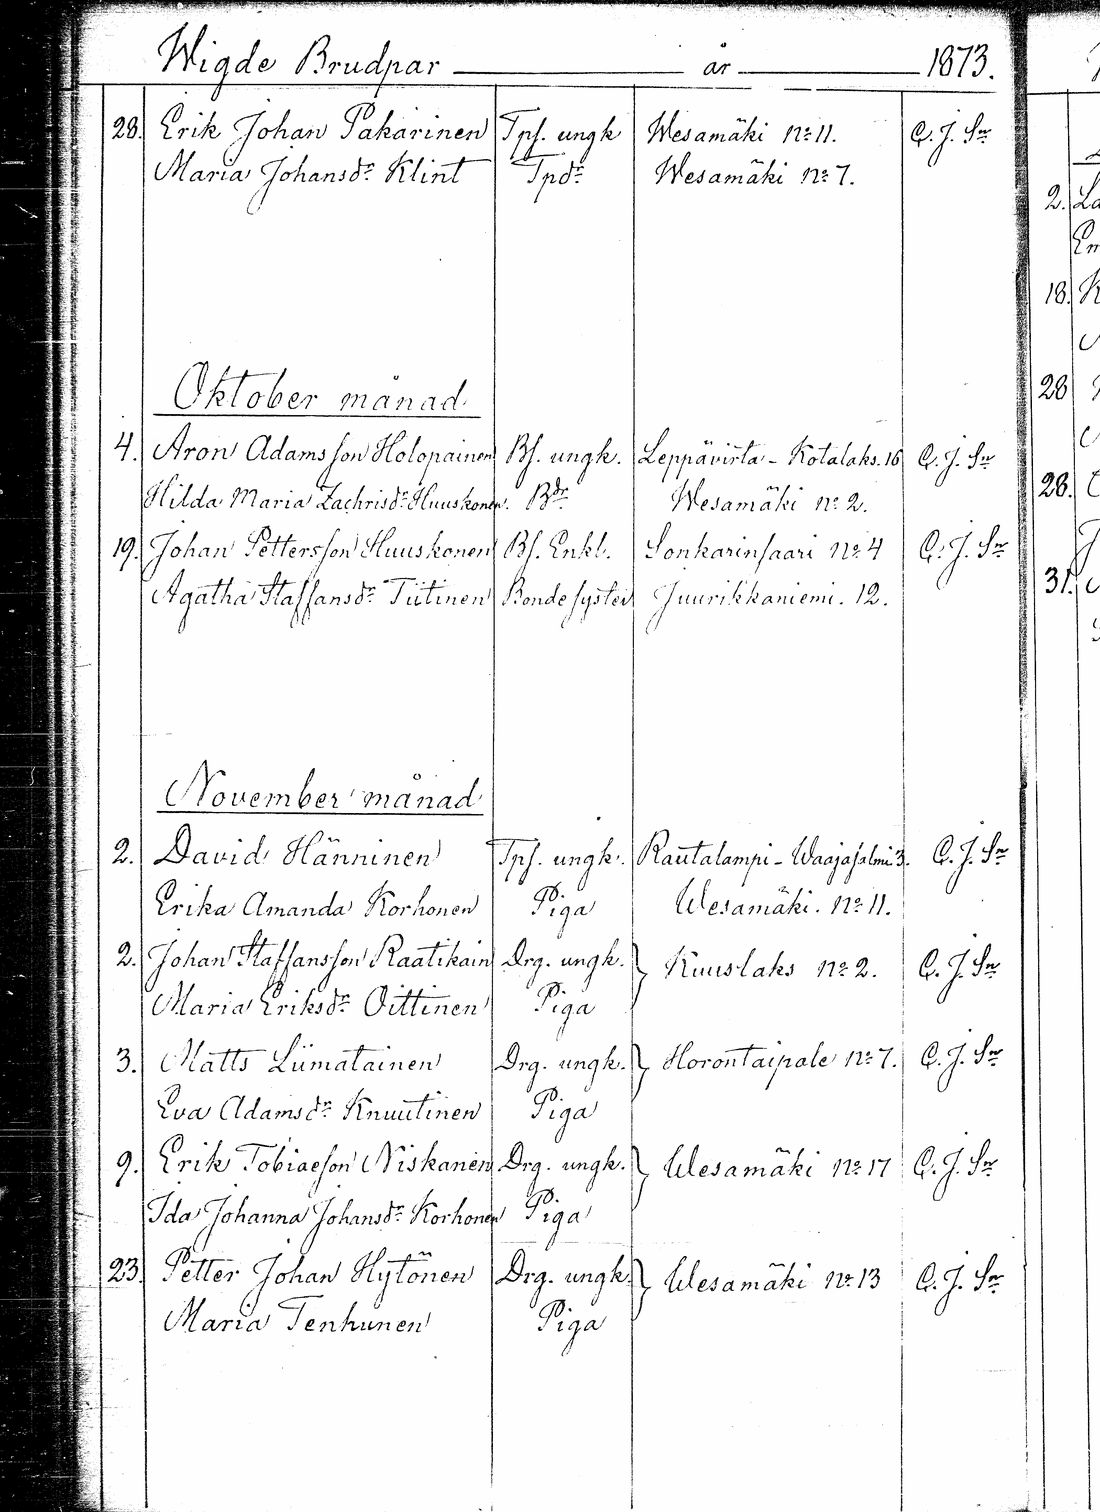 Wigde Brudpar år 1873.
28. Erik Johan Pakarinen Tpf. ungk Wesamäki No 11. C. J. Sn
Maria Johansdr Klint Tpdr Wesamäki No 7.
Oktober månad
4. Aron Adamsson Holopainen Bf. ungk. Leppävirta - Kotalaks. 16 C. J. Sn
Hilda Maria Zachrisdr Huuskonen. Bdr Wesamäki No 2.
19. Johan Pettersson Huuskonen Bf. Enkl. Sonkarinsaari No 4 C. J. Sn
Agatha Staffansdr Tiitinen Bondesyster Juurikkaniemi. 12.
November månad
2. David Hänninen Tpf. ungk. Rautalampi - Waajasalmi 3. C. J. Sn
Erika Amanda Korhonen Piga Wesamäki. No 11.
2. Johan Staffansson Raatikain Drg. ungk. Kuuslaks No 2. C. J. Sn
Maria Eriksdr Oittinen Piga
3. Matts Liimatainen Drg. ungk. Horontaipale No 7. C. J. Sn
Eva Adamsdr Knuutinen Piga
9. Erik Tobiaeson Niskanen Drg. ungk. Wesamäki No 17 C. J. Sn
Ida Johanna Johansdr Korhonen Piga
23. Petter Johan Hytönen Drg. ungk. Wesamäki No 13 C. J. Sn
Maria Tenhunen Piga
2.
18.
28
28.
31.